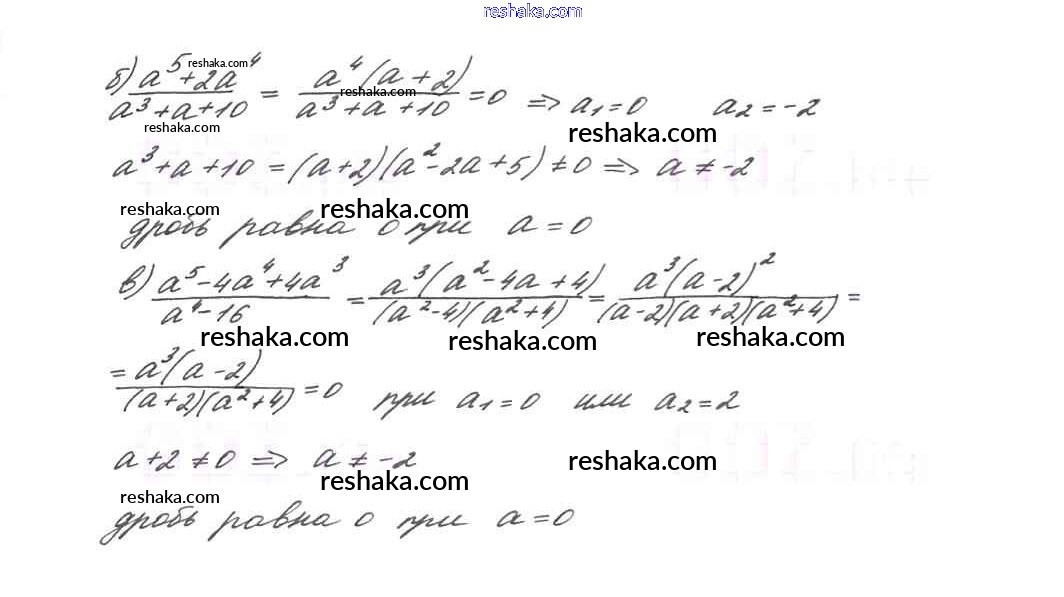 reshaka.com
б) (a⁵+2a⁴)/(a³+a+10) = (a⁴(a+2))/(a³+a+10) = 0 ⇒ a₁=0 a₂=-2
reshaka.com
reshaka.com
reshaka.com reshaka.com
a³+a+10 = (a+2)(a²-2a+5) ≠ 0 ⇒ a ≠ -2
reshaka.com reshaka.com
дробь равна 0 при a = 0
в) (a⁵-4a⁴+4a³)/(a⁴-16) = (a³(a²-4a+4))/((a²-4)(a²+4)) = (a³(a-2)²)/((a-2)(a+2)(a²+4)) =
reshaka.com reshaka.com reshaka.com
= (a³(a-2))/((a+2)(a²+4)) = 0 при a₁=0 или a₂=2
a+2 ≠ 0 ⇒ a ≠ -2
reshaka.com
reshaka.com reshaka.com
дробь равна 0 при a=0